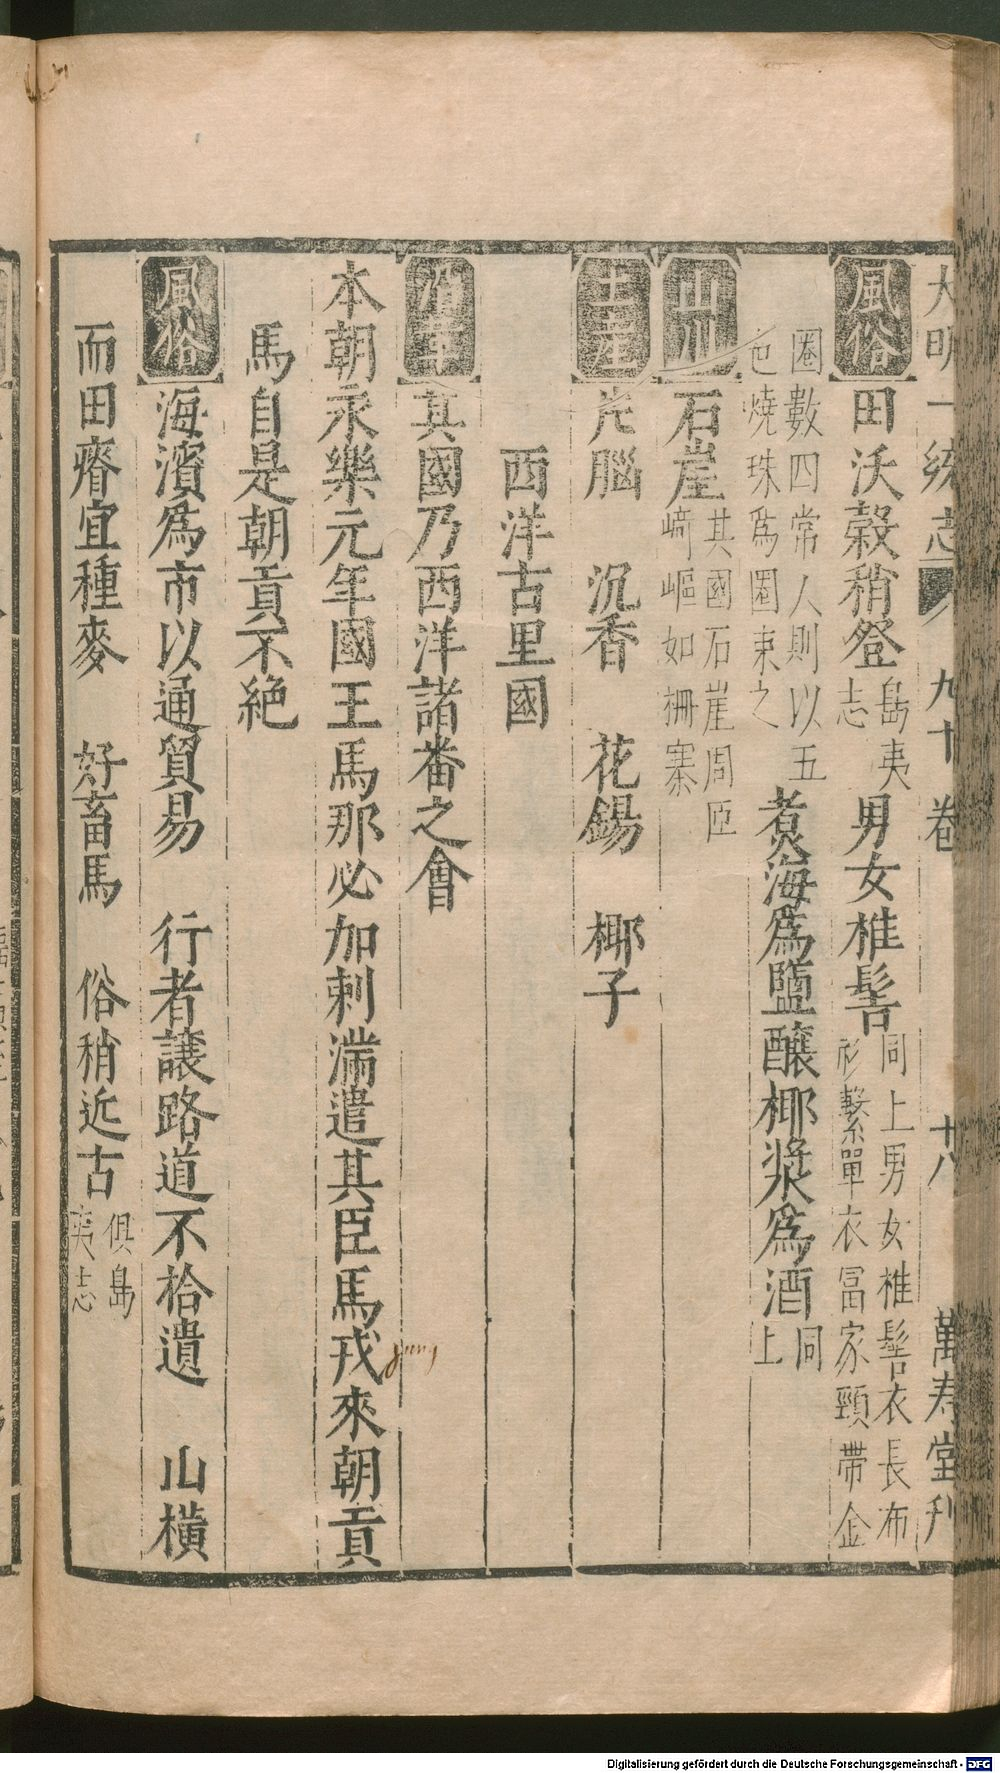 大明一統志 九十卷 十八 萬寿堂刋
風俗 田沃穀稍登 島夷志 男女椎髻 同上男女椎髻衣長布衫繫單衣冨家頸帶金
圈數四常人則以五色燒珠爲圏束之 煮海爲鹽釀椰漿爲酒 同上
山川 石崖 其國石崖周匝崎嶇如柵寨
土産 片腦 沉香 花錫 椰子
西洋古里國
沿革 其國乃西洋諸番之會
本朝永樂元年國王馬那必加剌湍遣其臣馬戎來朝貢
jung
馬自是朝貢不絶
風俗 海濱爲市以通貿易 行者讓路道不拾遺 山橫
而田瘠宜種麥 好畜馬 俗稍近古 俱島夷志
Digitalisierung gefördert durch die Deutsche Forschungsgemeinschaft - DFG